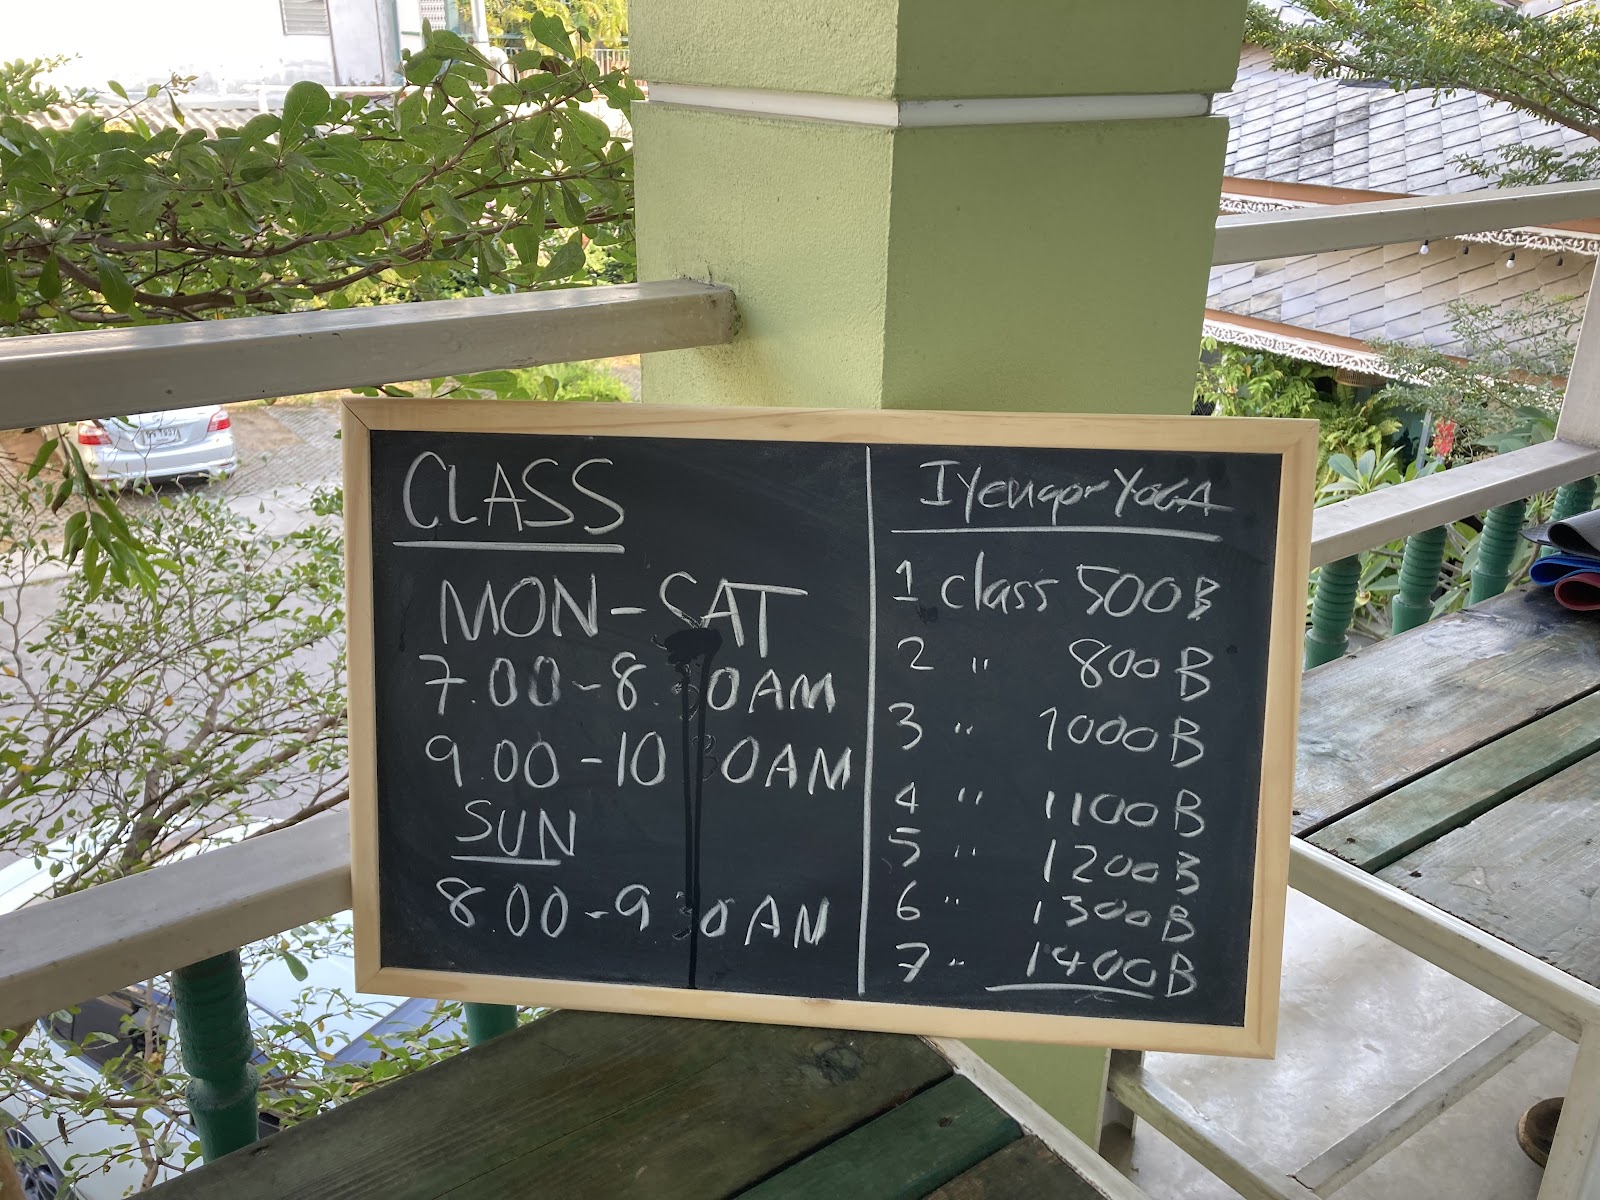 CLASS
MON-SAT
7.00-8.30AM
9.00-10.30AM
SUN
8.00-9.30AM
Iyengar YOGA
1 class 500B
2 " 800B
3 " 1000B
4 " 1100B
5 " 1200B
6 " 1300B
7 " 1400B